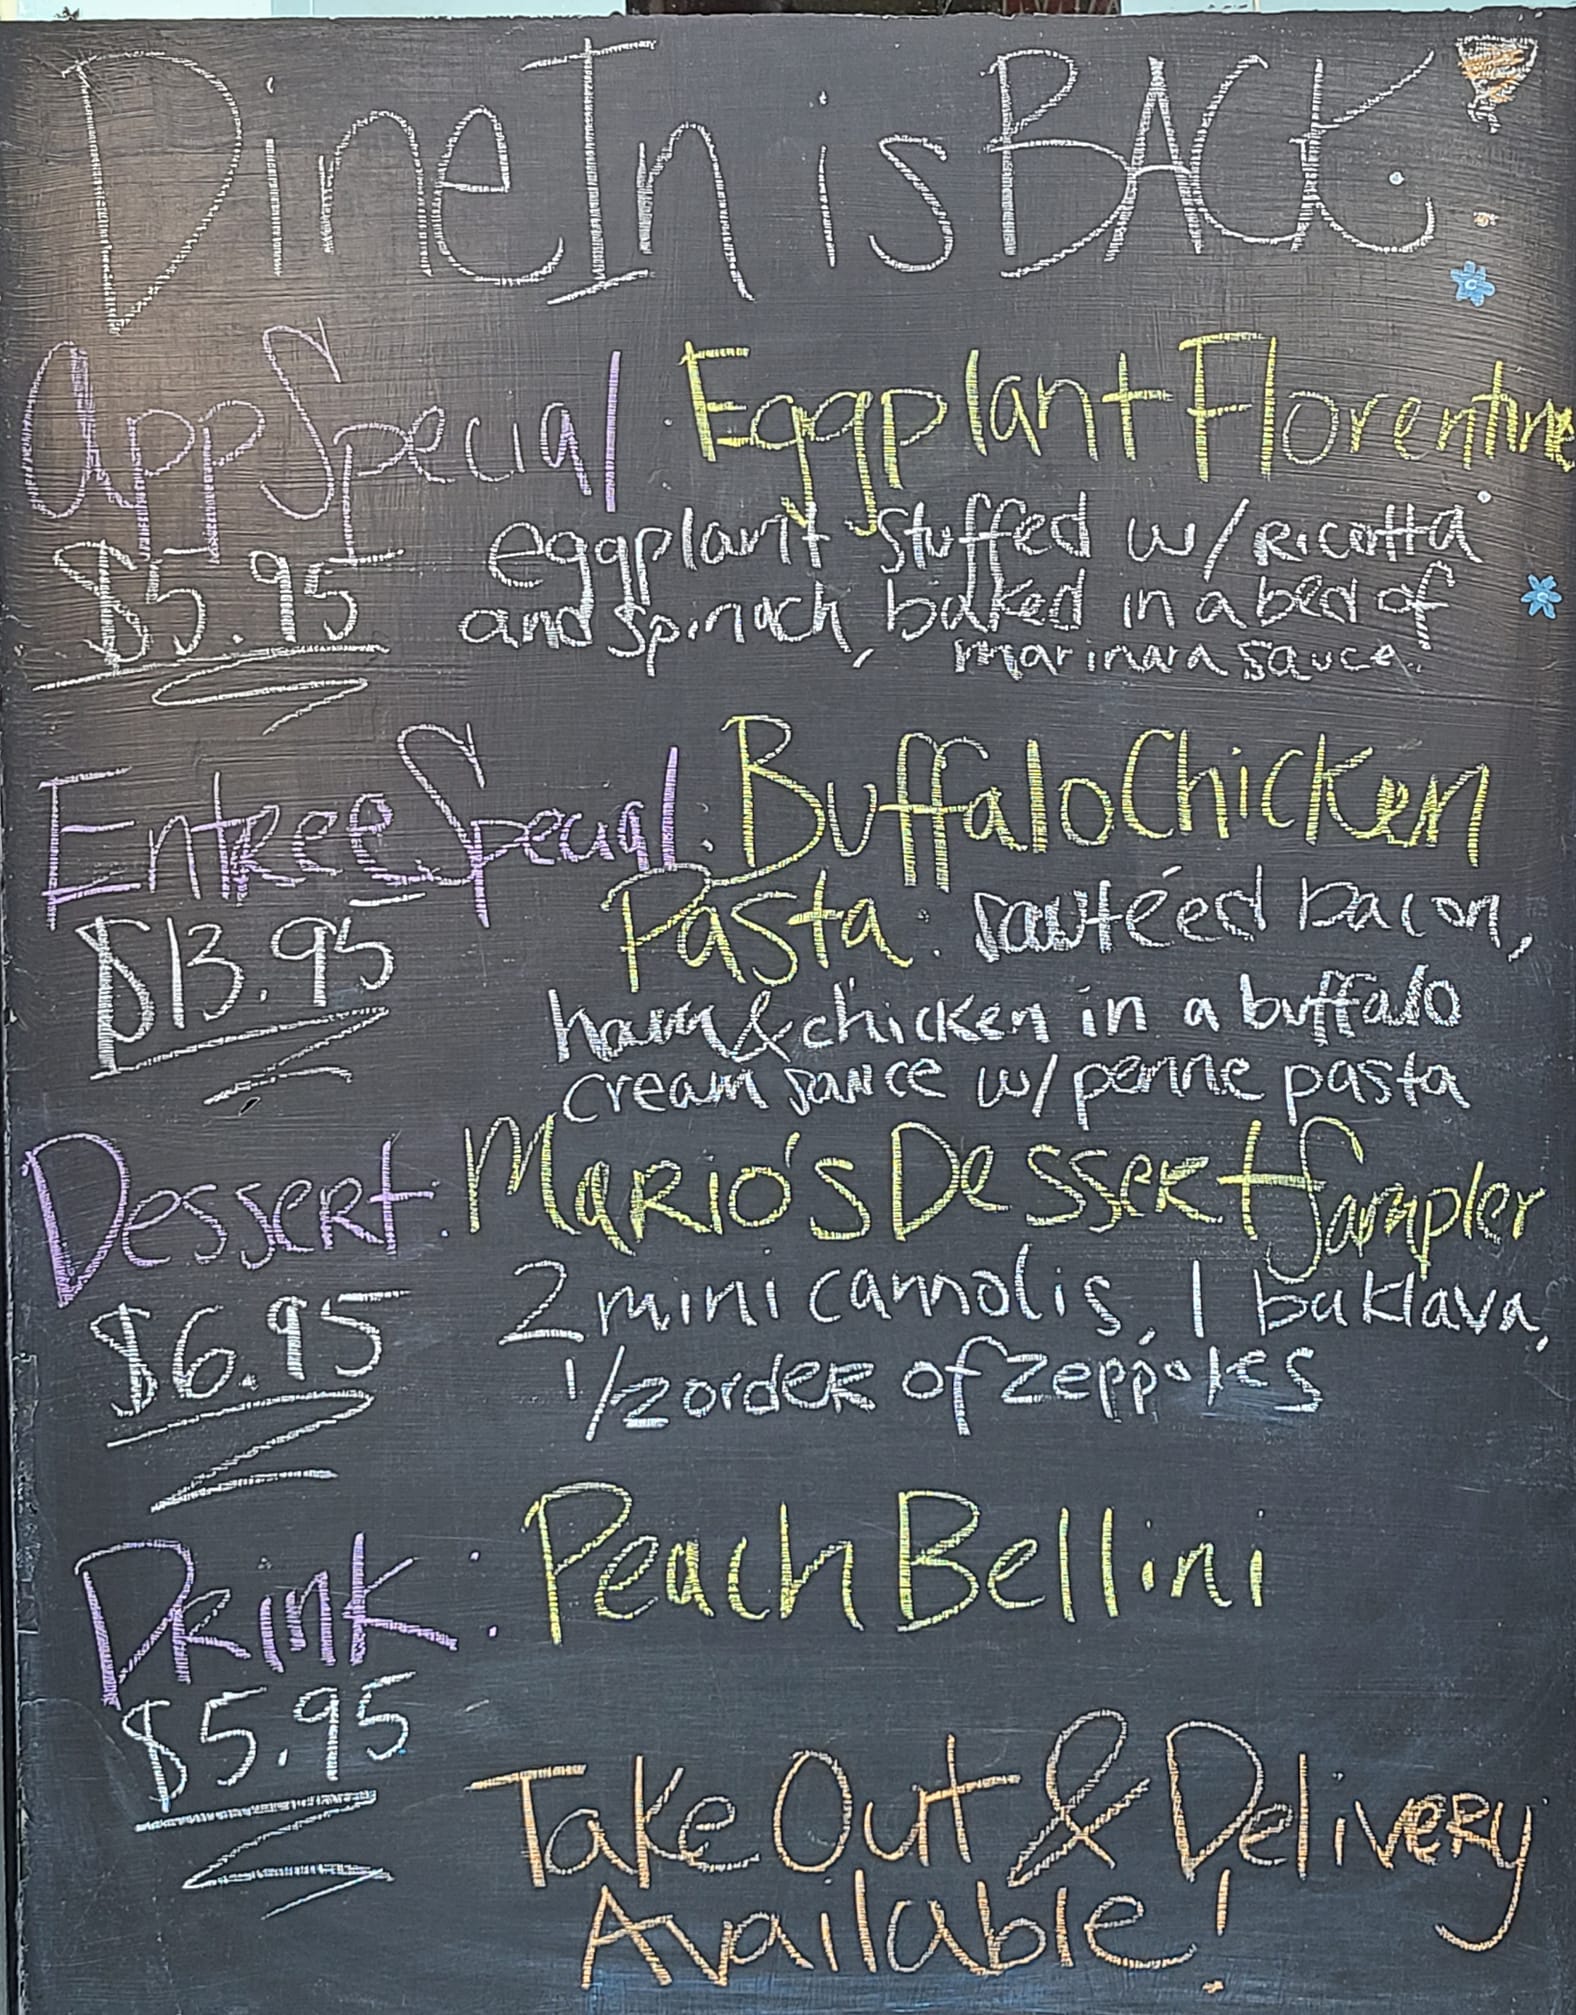 Dine In is BACK!
App Special: Eggplant Florentine
$5.95 eggplant stuffed w/ Ricotta
and spinach, baked in a bed of
marinara sauce.
Entree Special: Buffalo Chicken
$13.95 Pasta: sautéed bacon,
ham & chicken in a buffalo
cream sauce w/ penne pasta
Dessert: Mario's Dessert Sampler
$6.95 2 mini cannolis, 1 baklava,
1/2 order of zeppoles
Drink: Peach Bellini
$5.95
Take Out & Delivery
Available!